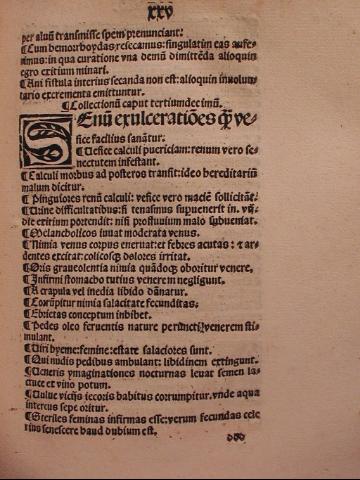 xxv
per aluū transmisse spem prenunciant:
¶ Cum hemorrhoydas resecamus: singulatim eas aufe-
rimus: in qua curatione vna demū dimittēda alioquin
egro exitium minari.
¶ Ani fistula interius secanda non est: alioquin inuolun-
taria excrementa emittuntur.
¶ Collectionū caput tertiumdecimū.
SEnū exulceratiōes q̄ʒ ve-
sice facilius sanātur.
¶ Vesice calculi puericiam: renum vero se-
nectutem infestant.
¶ Calculi morbus ad posteros transit: ideo hereditariū
malum dicitur.
¶ Pinguiores renū calculi: vesice vero maciē sollicitāt.
¶ Vrine difficultatibus: si tenasmus superuenerit in
die exitium portendit: nisi profluuium malo subueniat.
¶ Melancholicos iuuat moderata venus.
¶ Nimia venus corpus eneruat: et febres acutas: ⁊ ar-
dentes excitat: colicosq̄ʒ dolores irritat.
¶ Oris graueolentia nimia quādoq̄ʒ oboritur venere.
¶ Infirmi stomacho tutius venerem negligunt.
¶ A crapula vel inedia libido dānatur.
¶ Corrūpitur nimia salacitate fecunditas:
¶ Ebrietas conceptum inhibet.
¶ Pedes oleo feruentis nature venerem sti-
mulant.
¶ Uiri hyeme: femine: estate salaciores sunt.
¶ Qui nudis pedibus ambulant: libidinem extingunt.
¶ Veneris ymaginationes nocturnas leuat semen la-
ctuce et vino potum.
¶ Vulue vicijs iecoris habitus corrumpitur. vnde aqua
intercus sepe oritur.
¶ Steriles feminas infirmas esse: verum fecundas cele
rius senescere haud dubium est.